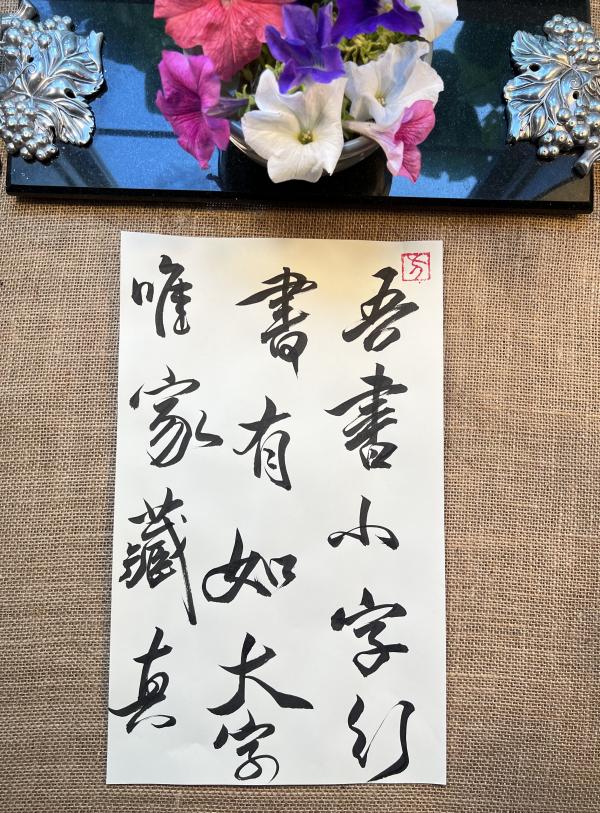 吾書小字行
書有如大字
唯家藏真